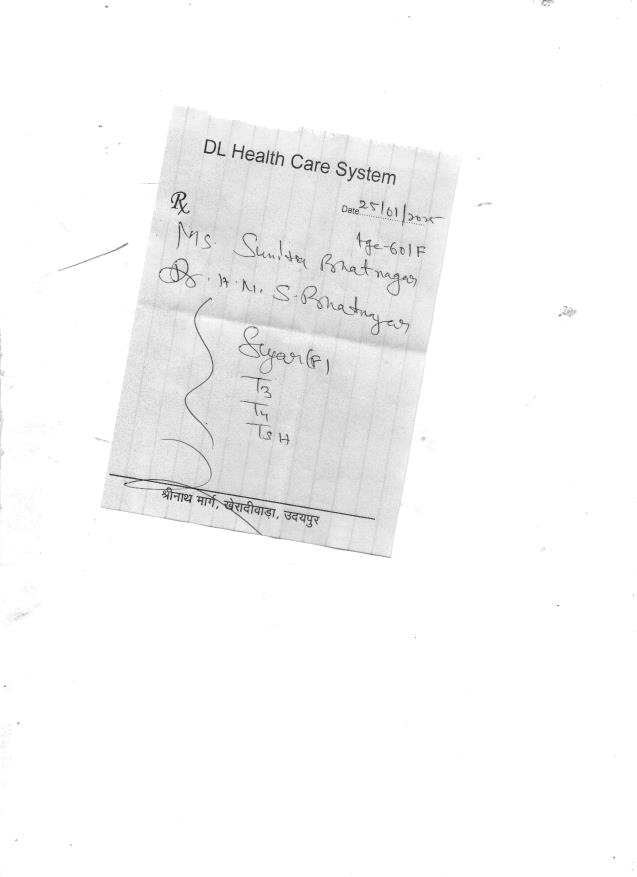 DL Health Care System
Rx
Date 25/01/2025
Age-60/F
Ms. Sunita Bhatnagar
Dr. H.M. S. Bhatnagar
Sugar(F)
T3
T4
TSH
श्रीनाथ मार्ग, खेरादीवाड़ा, उदयपुर